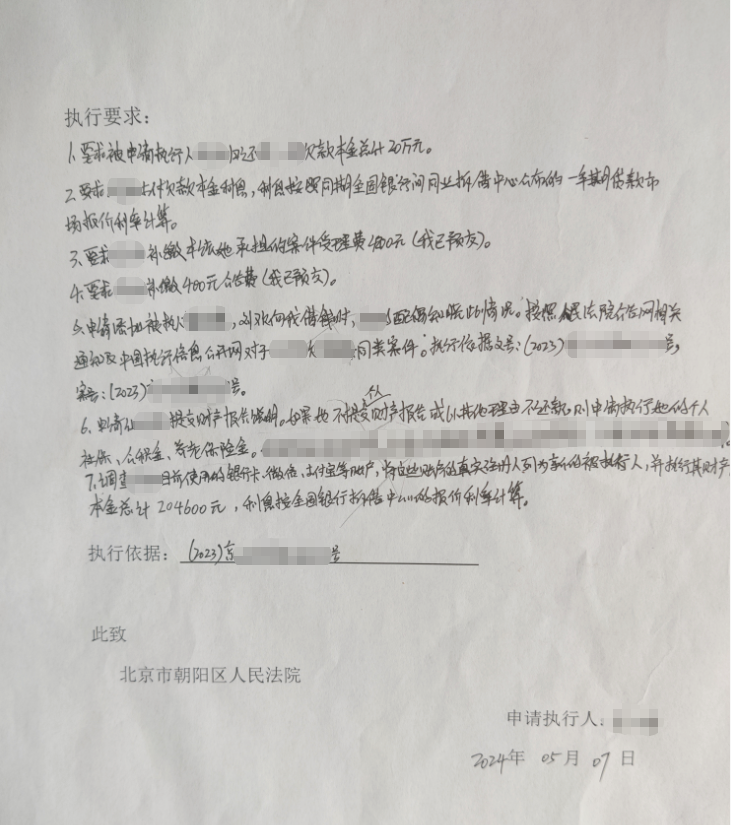 执行要求：
1.要求被申请执行人 归还 欠款本金总计20万元。
2.要求 支付欠款本金利息，利息按照同期全国银行间同业拆借中心公布的一年期贷款市
场报价利率计算。
3.要求 补缴本该她承担的案件受理费 元（我已预交）。
4.要求 补缴400元公告费（我已预交）。
5.申请添加被执人 ， 向我借钱时， 配偶 此情况。按照人民法院公告网相关
通知及中国执行信息公开网对于 同类案件。执行依据文号：（2023） 号，
案号：（2023） 号。
6.申请 提交财产报告说明。如果她不提交个人财产报告或以其他理由不还款，则申请执行她的个人
社保、公积金、养老保险金。
7.调查 目前使用的银行卡、微信、支付宝等账户，将这些账户的真实注册人列为新的被执行人，并执行其财产
本金总计204600元，利息按全国银行拆借中心的报价利率计算。
执行依据：（2023）京 号
此致
北京市朝阳区人民法院
申请执行人：
2024年 05月 07日